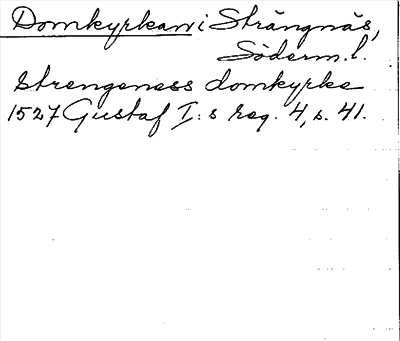 Domkyrkan i Strängnäs,
Söderm.l.
Strengeness domkyrke
1527 Gustaf I:s reg. 4, s. 41.